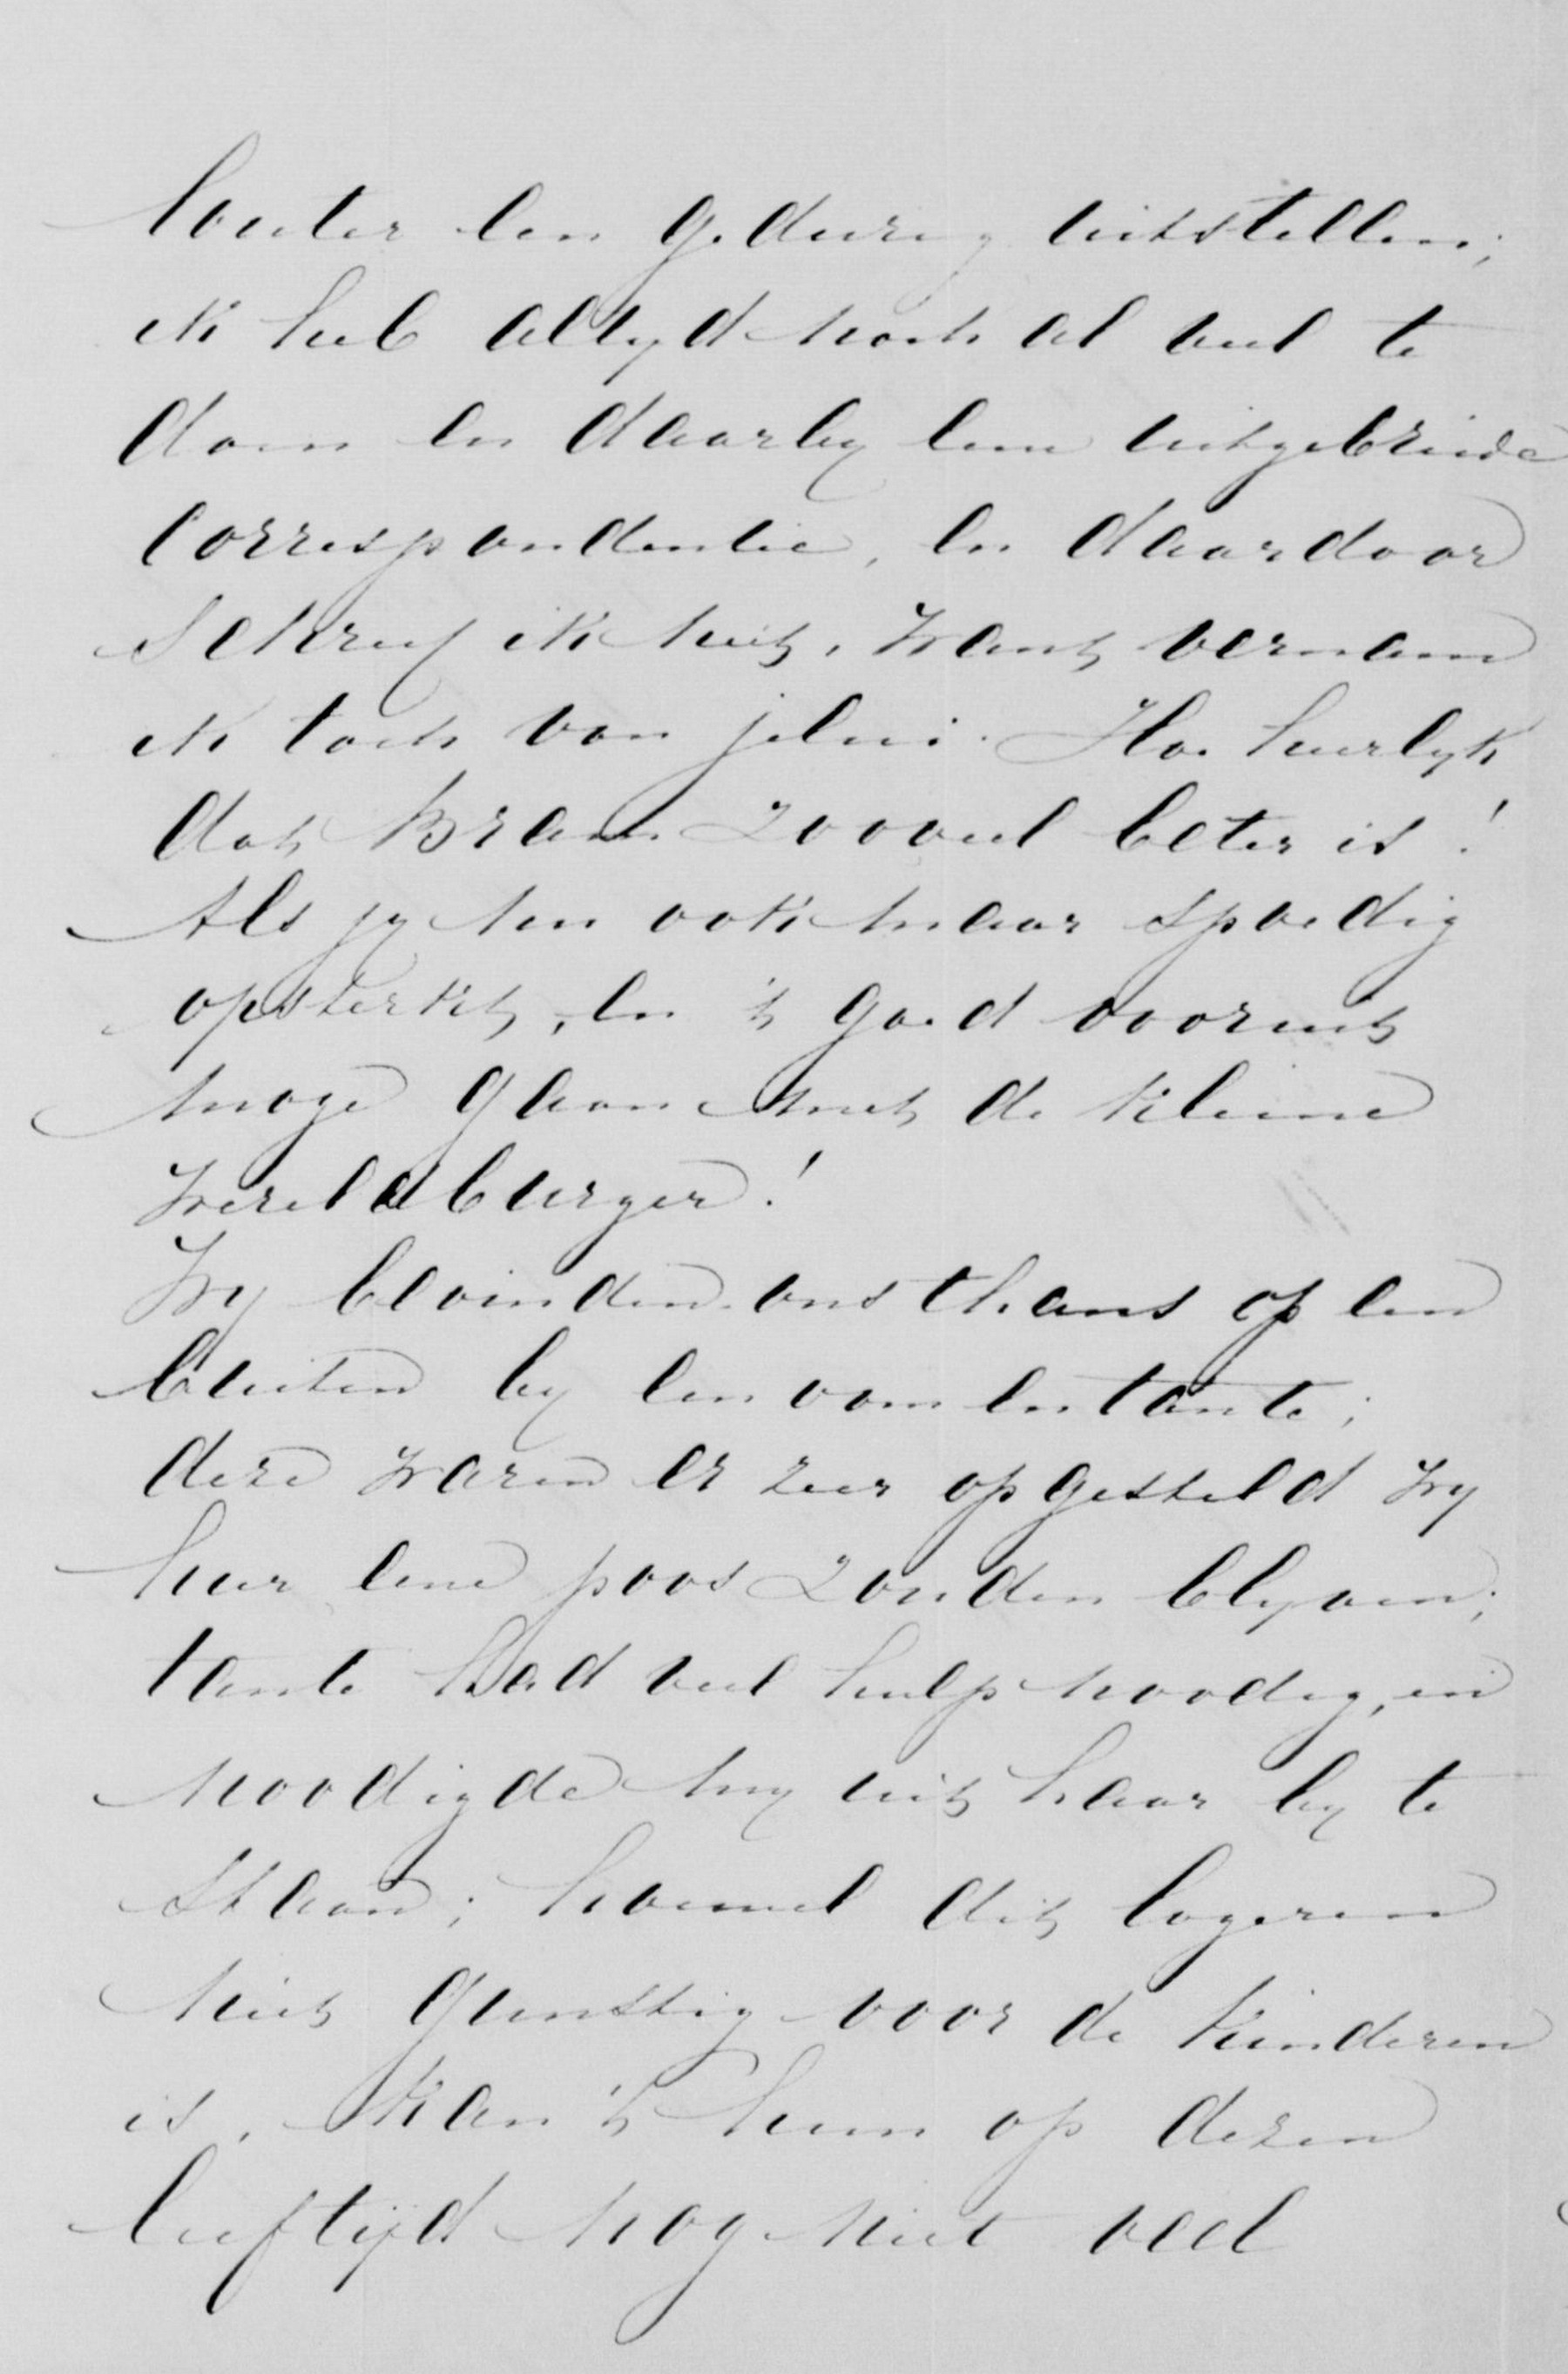 louter een gedurig uitstellen;
ik heb altyd noch al veel te
doen en daarby eene uitgebreide
correspondentie, en daardoor
schreef ik niet, want vernam
ik toch van jelui. Hoe heerlyk
dat Bram zooveel beter is!
Als jy nu ook maar spoedig
opsterkt, en 't goed vooruit
moge gaan met de kleine
wereldburger!
Wy bevinden ons thans op een
buiten by een oom en tante;
deze waren er zeer op gesteld wy
hier eene poos zouden blyven;
tante had veel hulp noodig, en
noodigde my uit haar by te
staan; hoewel dit logeren
niet gunstig voor de kinderen
is, kan 't hun op dezen
leeftijd nog niet veel